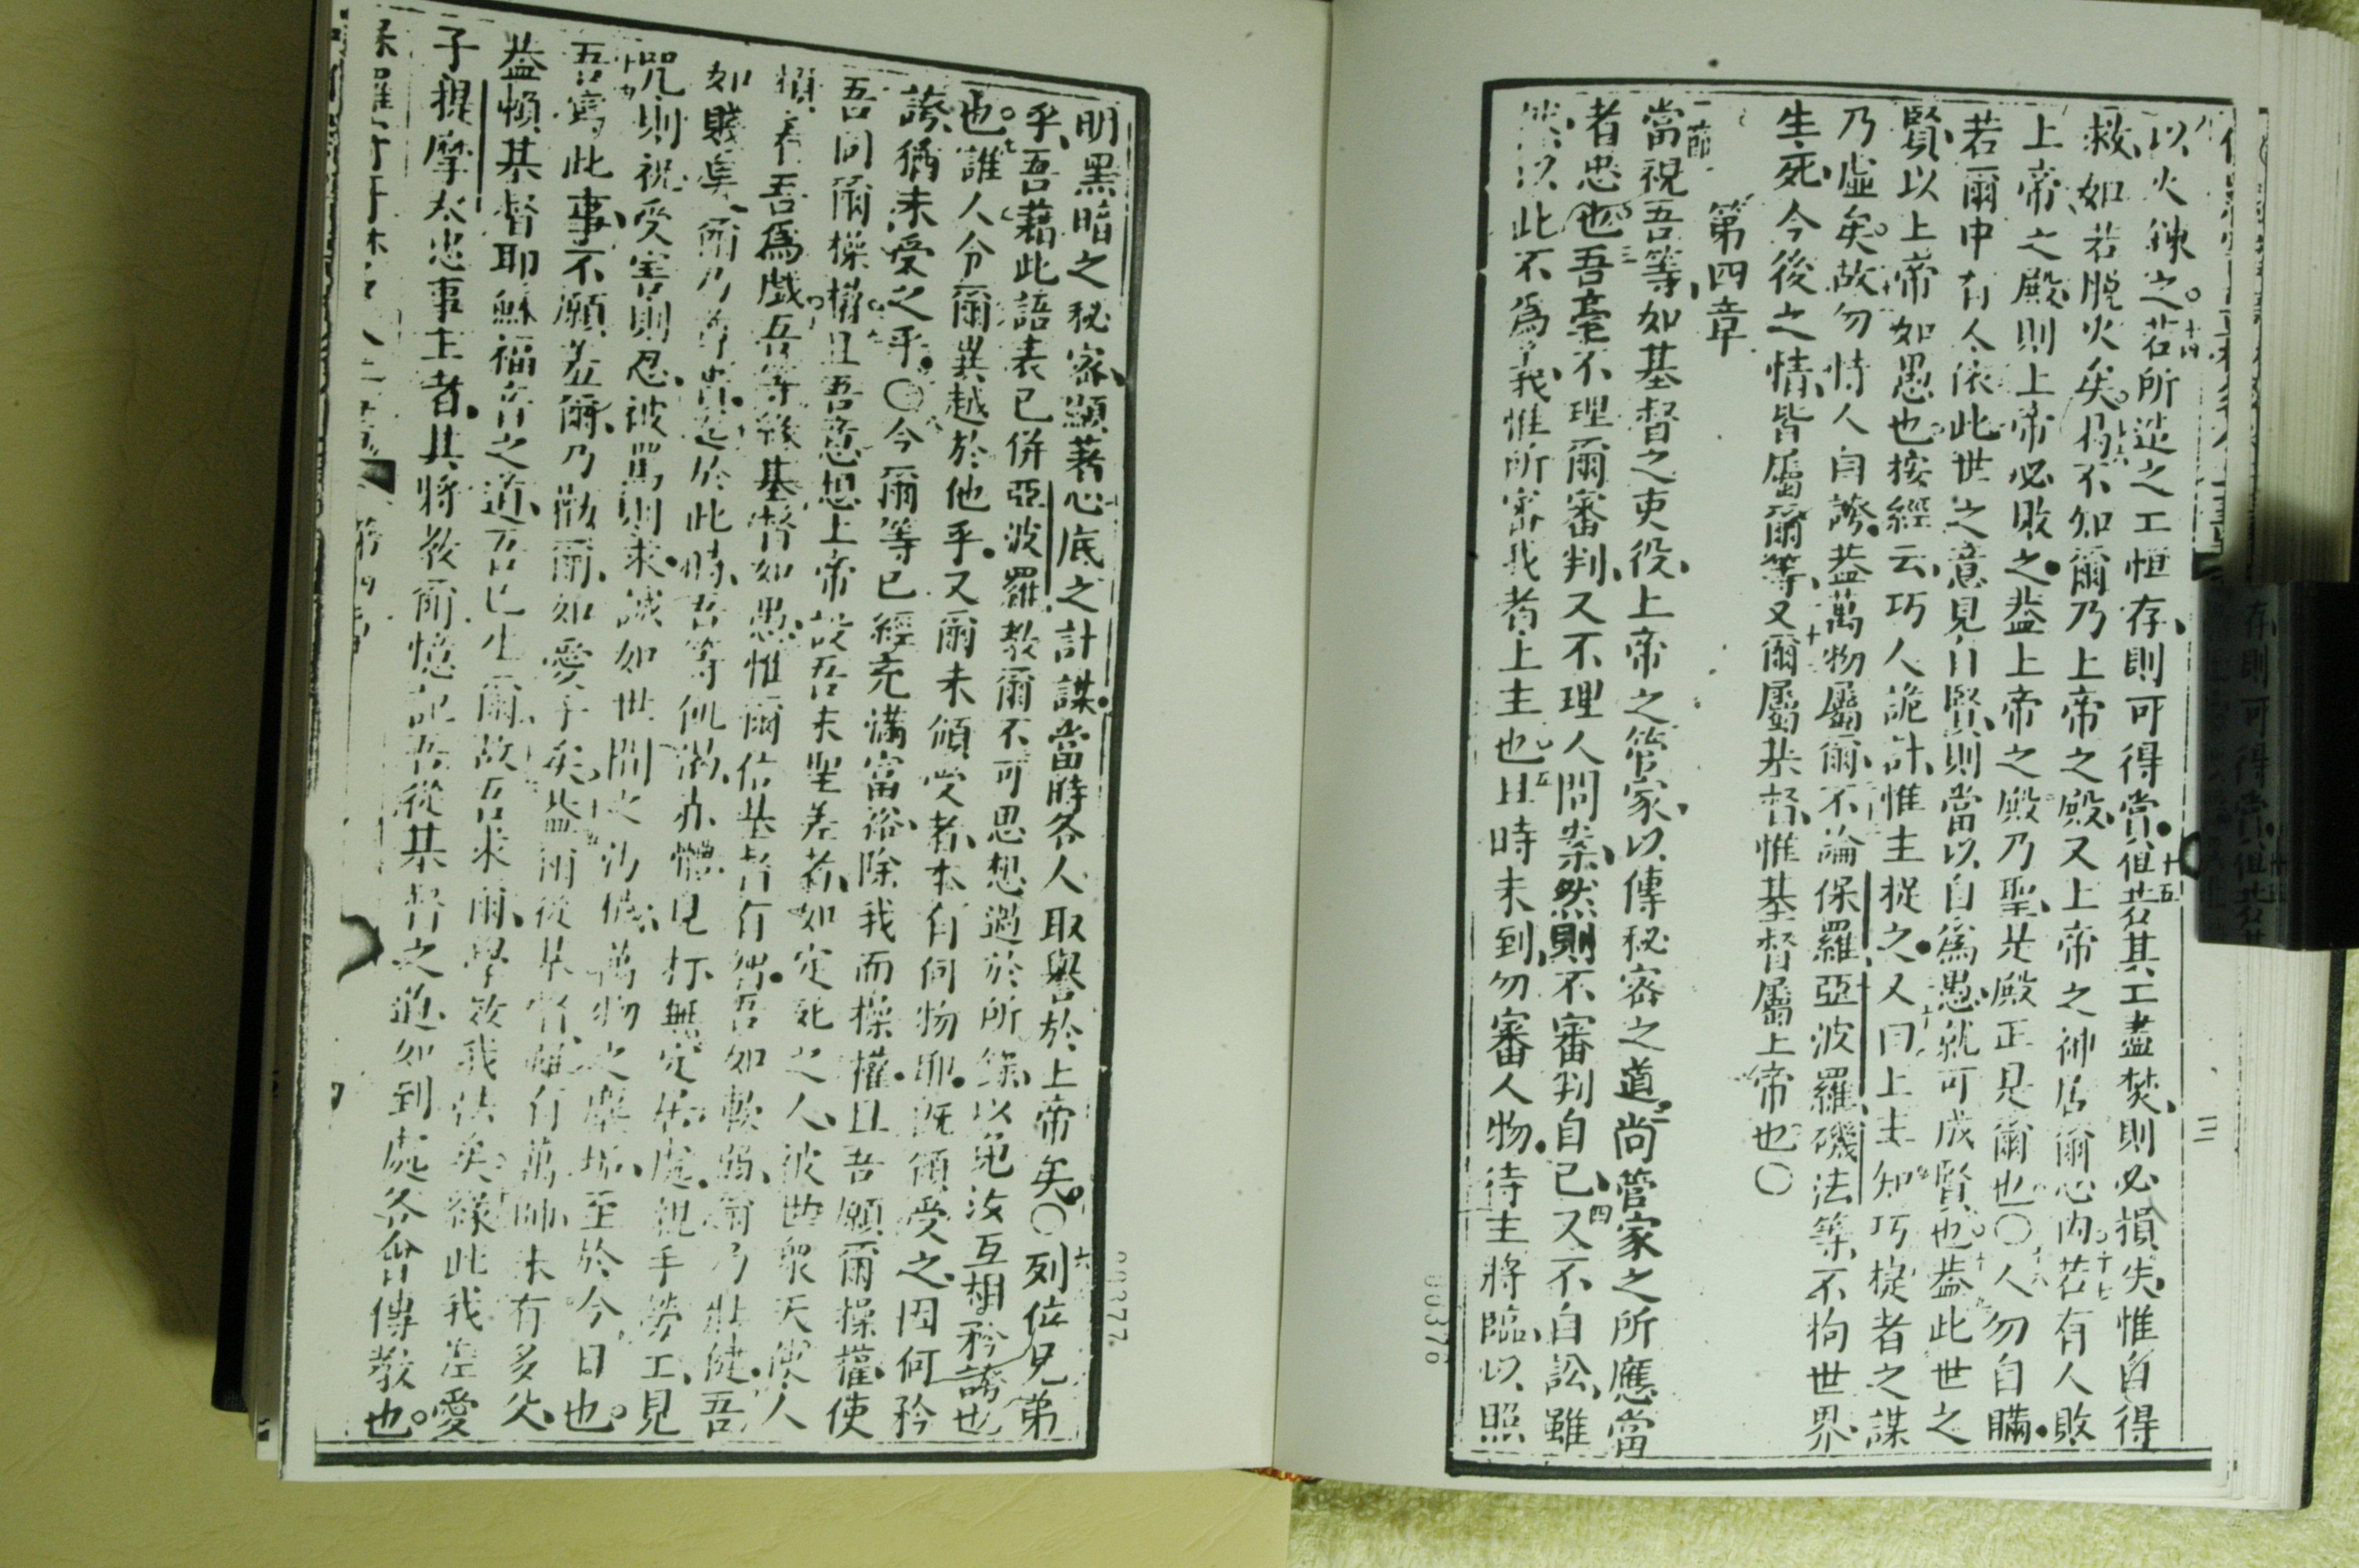 以火煉之。十四若所造之工恒存、則可得賞。十五但若其工盡焚、則必損失、惟自得
救、如若脫火矣。十六爾不知爾乃上帝之殿、又上帝之神居爾心內。十七若有人敗
上帝之殿、則上帝必敗之。蓋上帝之殿乃聖、是殿正是爾也。〇十八人勿自瞞。
若爾中有人依此世之意見自賢、則當以自為愚、就可成賢也。十九蓋此世之
賢、以上帝如愚也。按經云、巧人詭計、惟主捉之。二十又曰、上主知巧捉者之謀
乃虛矣。故勿恃人自誇。蓋萬物屬爾、不論保羅、亞波羅、磯法等、不拘世界、
生死、今後之情、皆屬爾等、又爾屬基督、惟基督屬上帝也。〇
第四章
一節當視吾等、如基督之吏役、上帝之管家、以傳秘密之道。二尚管家之所應當
者忠也。三吾毫不理爾審判、又不理人間案、然則不審判自己、四又不自訟、雖
然以此不為了、我惟所審我者上主也。五且時未到、勿審人物。待主將臨、以照
明黑暗之秘密、顯著心底之計謀。當時各人取譽於上帝矣。〇六列位兄弟
乎、吾藉此語表己併亞波羅、教爾不可思想過於所錄、以免汝互相矜誇也
也。七誰人令爾異越於他乎。又爾未領受者、本有何物耶。既領受之、因何矜
誇、猶未受之乎。〇八今爾等已經充滿富裕、除我而操權。且吾願爾操權、使
吾同爾操權。九且吾意想上帝設吾末聖差者、如定死之人、被世眾天使人
類、看吾為戲。十吾等緣基督如愚、惟爾信基督有智。吾如軟弱、爾乃壯健。吾
如賤矣、爾乃尊貴。十一迄於此時、吾等飢渴、赤體、見打、無定居處。親手勞工、見
咒則祝、受害則忍、被罵則求。誠如世間之污穢、萬物之塵垢、至於今日也。
十四吾寫此事、不願羞爾、乃勸爾、如愛子矣。蓋爾從基督、雖有萬師、未有多父、
蓋賴基督耶穌福音之道、吾已生爾、故吾求爾、學效我法矣。緣此我差愛
子提摩太忠事主者。其將教爾憶記吾從基督之道、如到處各會傳教也。
第四章
00376
00377